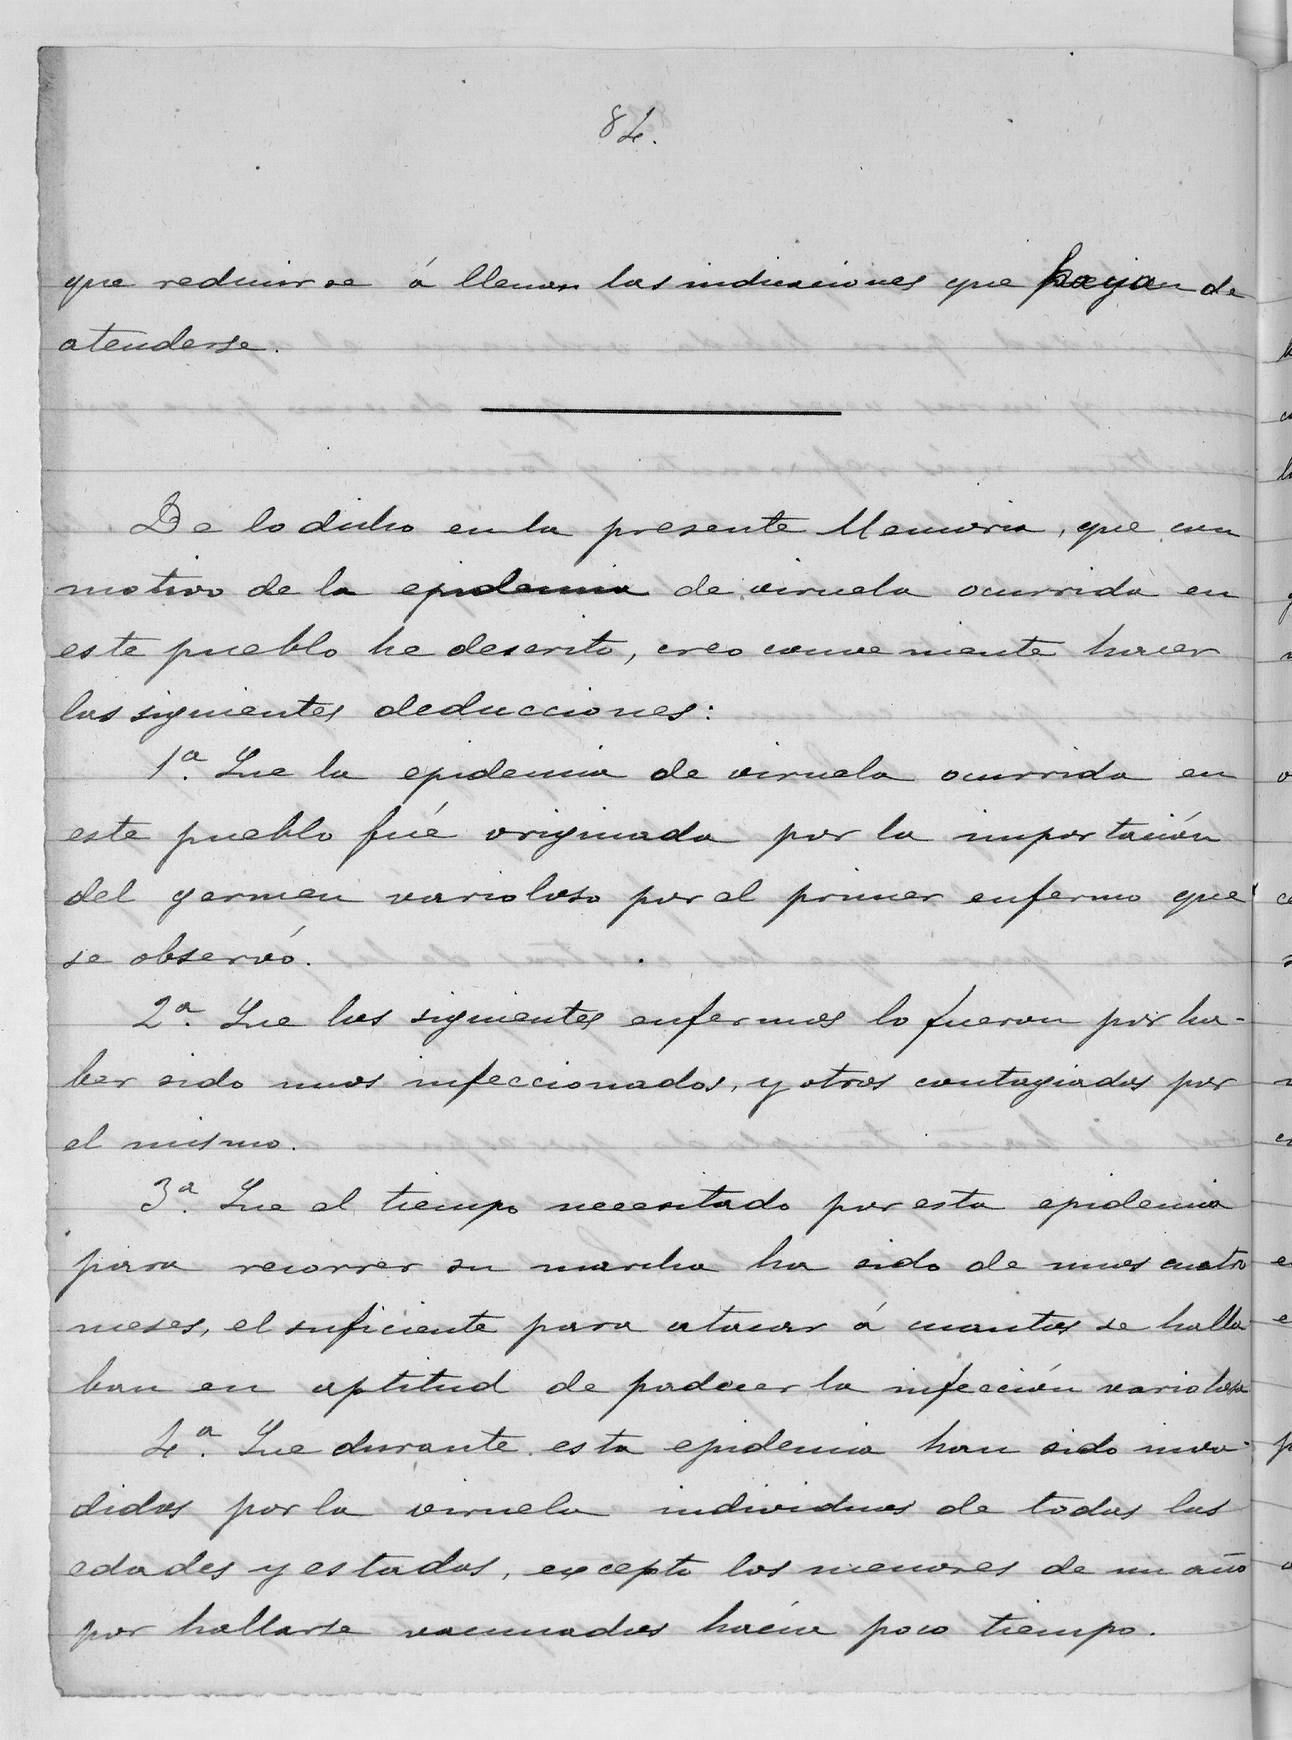 84.
que reducirse á llenar las indicaciones que hayan de
atenderse.
De lo dicho en la presente Memoria, que con
motivo de la epidemia de viruela ocurrida en
este pueblo he descrito, creo conveniente hacer
las siguientes deducciones:
1ª. Que la epidemia de viruela ocurrida en
este pueblo fué originada por la importación
del germen varioloso por el primer enfermo que
se observó.
2ª. Que los siguientes enfermos lo fueron por ha-
ber sido unos infeccionados, y otros contagiados por
el mismo.
3ª. Que el tiempo necesitado por esta epidemia
para recorrer su marcha ha sido de unos cuatro
meses, el suficiente para atacar á cuantos se halla
ban en aptitud de padecer la infección variolosa
4ª. Que durante esta epidemia han sido inva-
didos por la viruela individuos de todas las
edades y estados, excepto los menores de un año
por hallarse vacunados hacía poco tiempo.